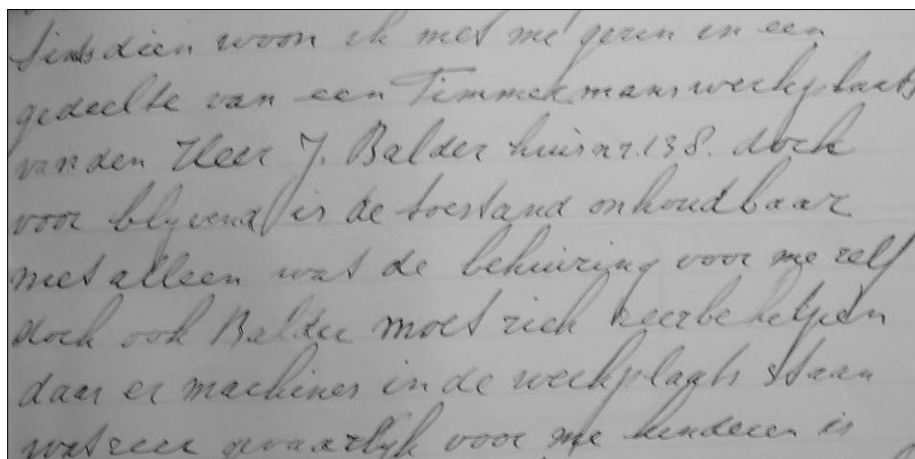 Sindsdien woon ik met me gezin in een
gedeelte van een Timmermanswerkplaats
van den Heer J. Balder huisnr. 138. doch
voor blyvend is de toestand onhoudbaar
niet alleen wat de behuizing voor me zelf
doch ook Balder moet zich zeer behelpen
daar er machines in de werkplaats staan
wat zeer gevaarlyk voor me kinderen is